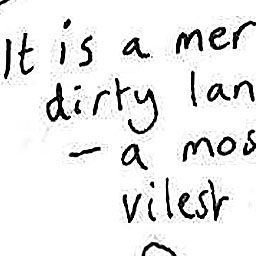 It is a mer
dirty lan
- a mos
vilest